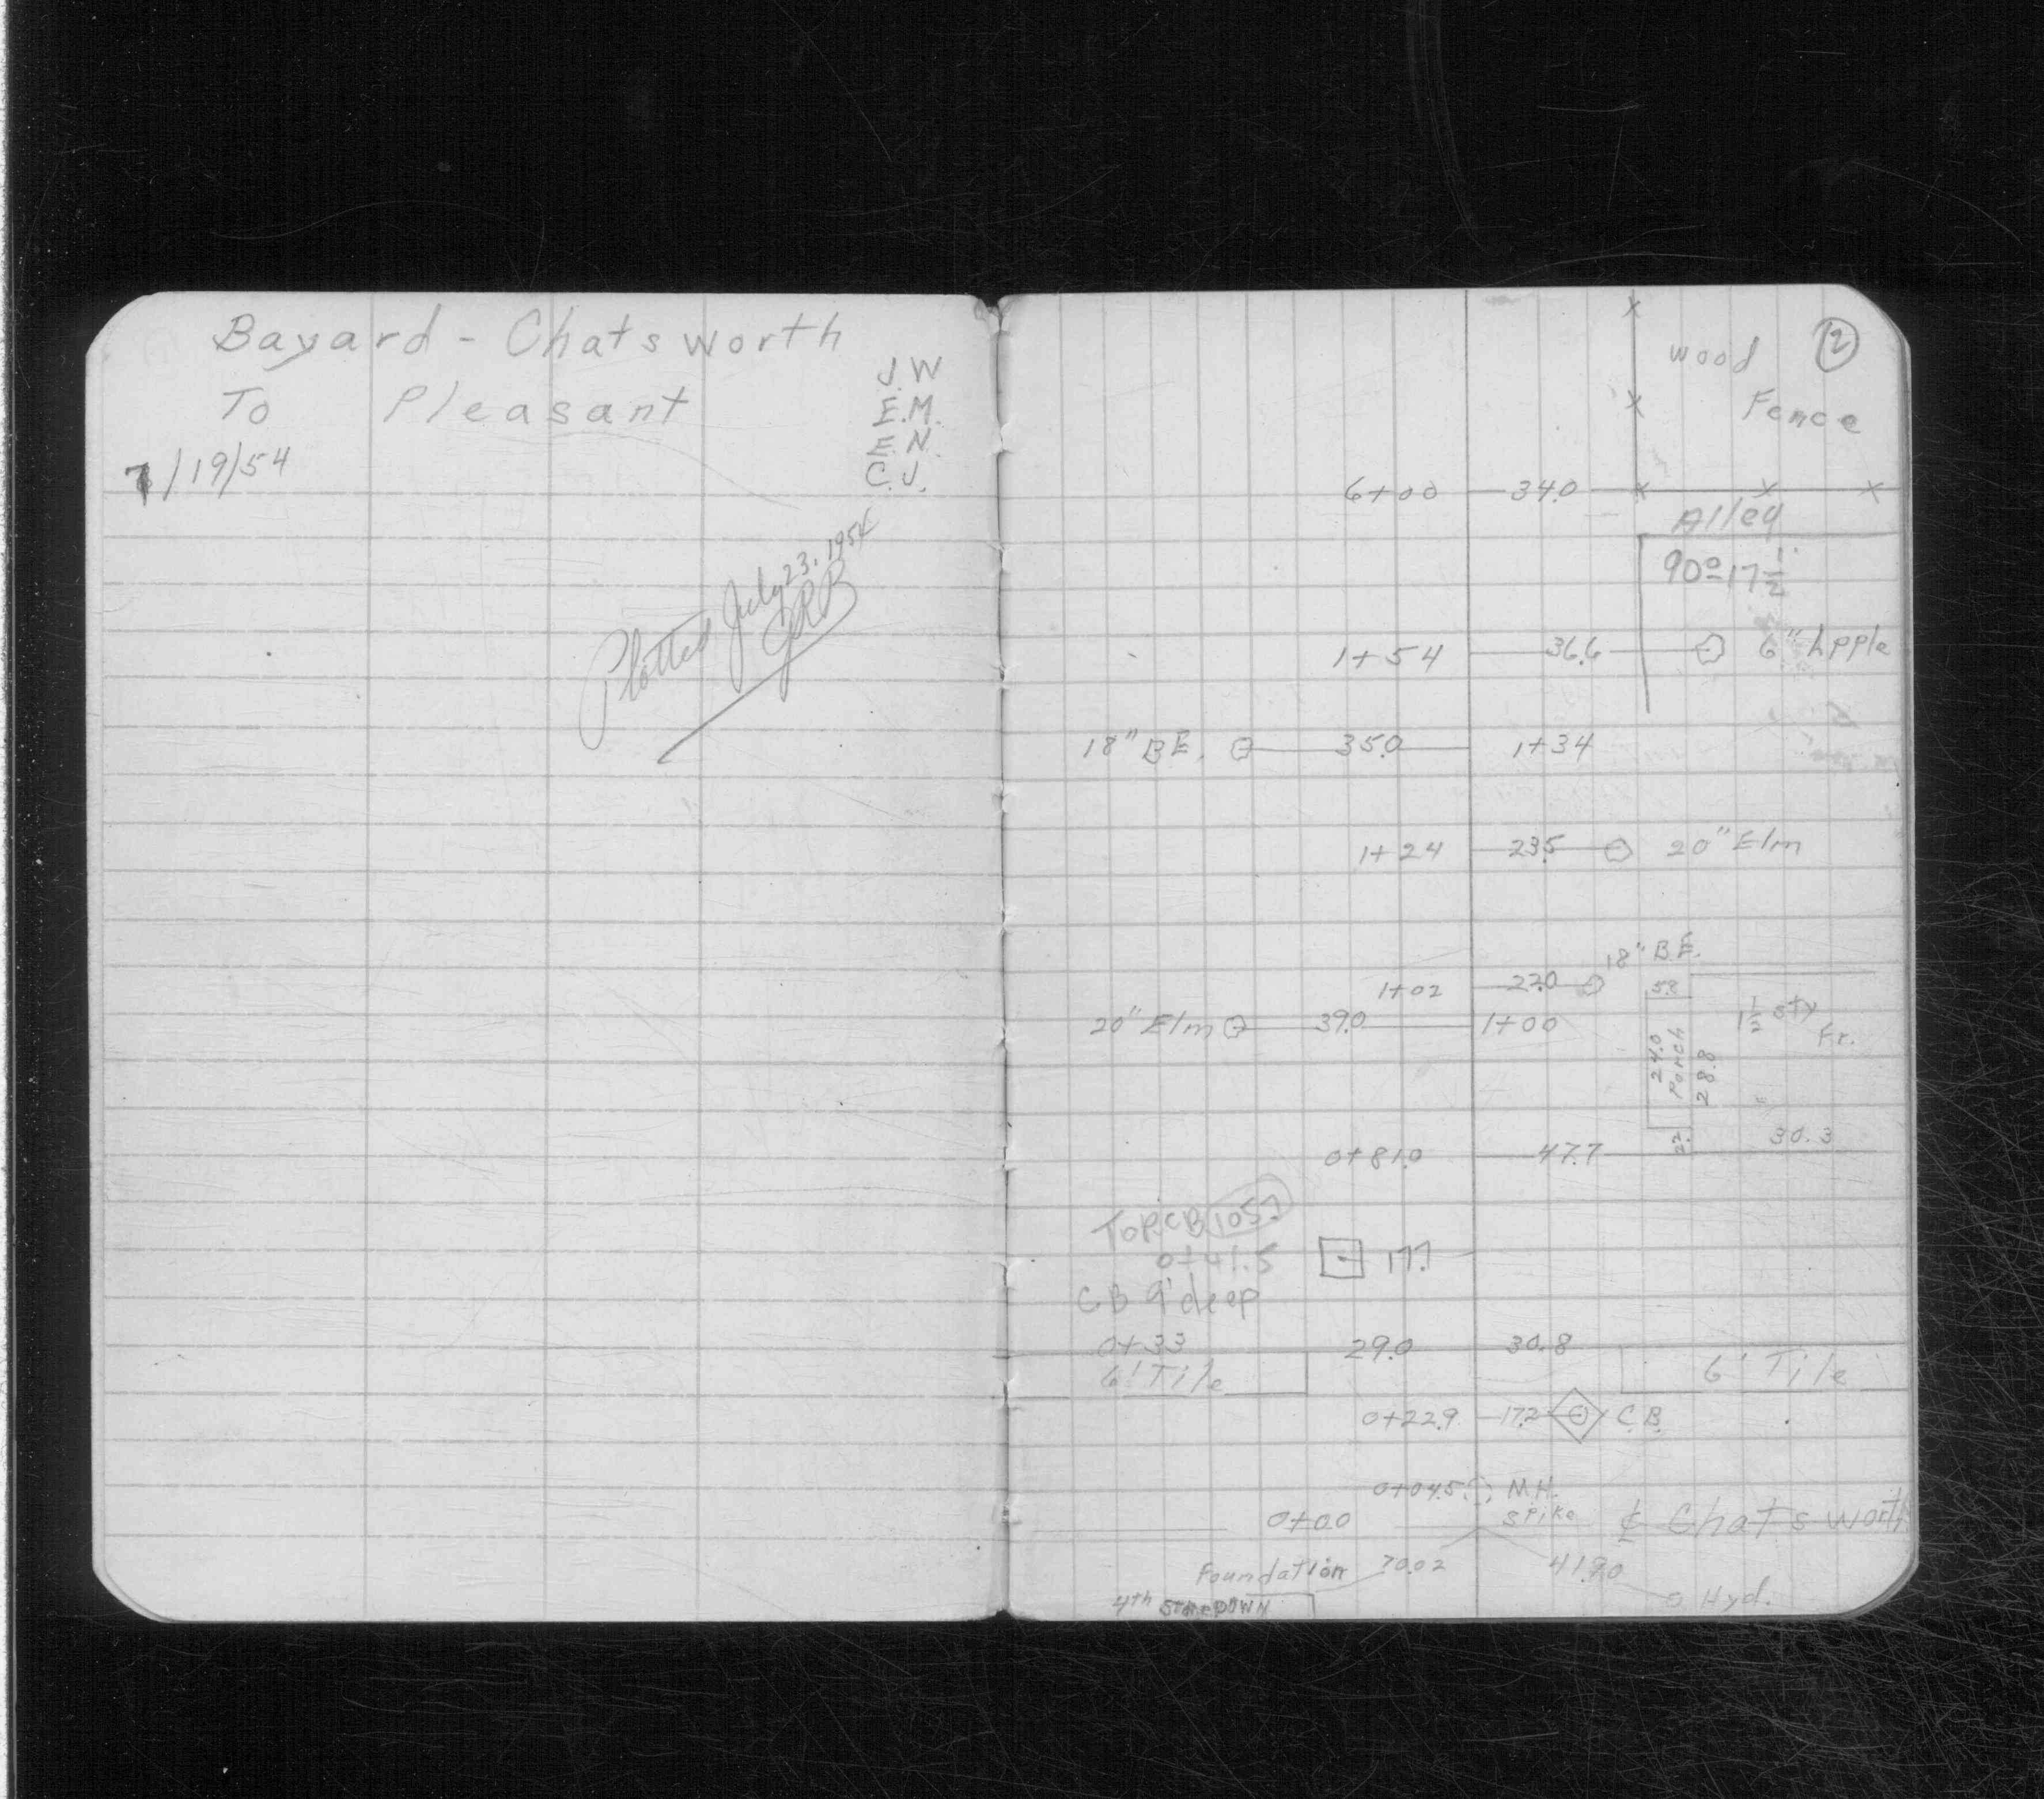 Bayard - Chatsworth
To Pleasant
7/19/54
J.W
E.M.
E.N.
C.J.
Plotted July 23, 1954
GRB
2
Wood
Fence
6+00 34.0
Alley
90º17½'
1+54 36.6 6" Apple
18" B.E. 35.0 1+34
1+24 23.5 20" Elm
18" B.E.
1+02 22.0
5.8
1½ sty
Fr.
20" Elm 39.0 1+00
24.0
Porch
28.8
2.2
30.3
0+81.0 47.7
Top CB 105.7
0+41.5 17.7
CB 9' deep
0+33 29.0 30.8
6' Tile 6' Tile
0+22.9 17.2 C.B.
0+04.5 M.H.
0+00 Spike ₵ Chatsworth
Foundation 70.02 41.90
4th Stone Down Hyd.